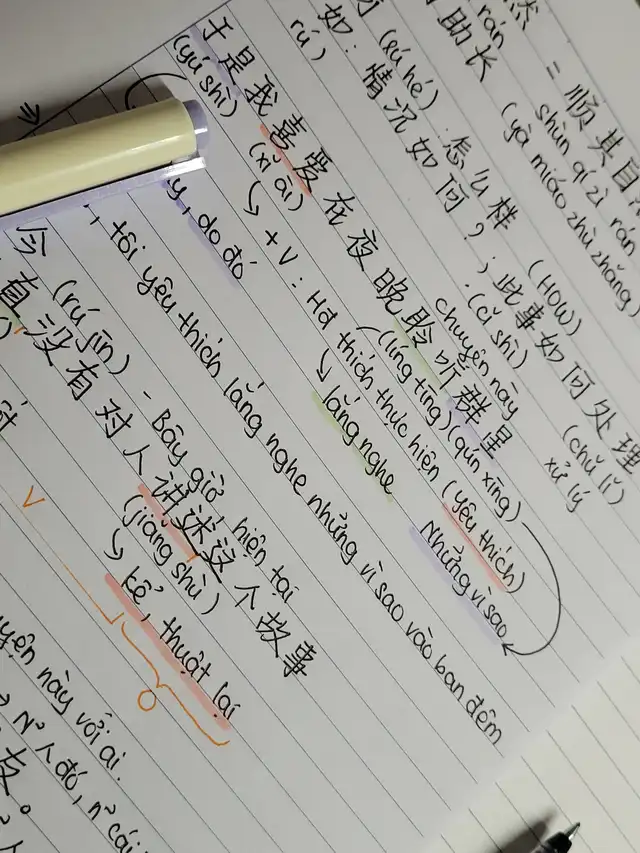 然 = 顺其自
rán shùn qí zì rán
助长 (yà miáo zhù zhǎng)
(rú hé) : 怎么样 (HOW)
如: 情况如何? ; 此事如何处理
rú) (cǐ shì) (chǔ lǐ)
chuyện này xử lý
于是我喜爱在夜晚聆听群星
(yú shì) (xǐ ài) (líng tīng) (qún xīng)
↳ + V : Hd thích thực hiện (yêu thích)
↳ lắng nghe Những vì sao
y, do đó
, tôi yêu thích lắng nghe những vì sao vào ban đêm
今 (rú jīn) - Bây giờ, hiện tại
直没有对人讲述这个故事
(jiǎng shù)
↳ kể, thuật lại
V O
yện này với ai.
→ n² 人 đó, n² cái
友。